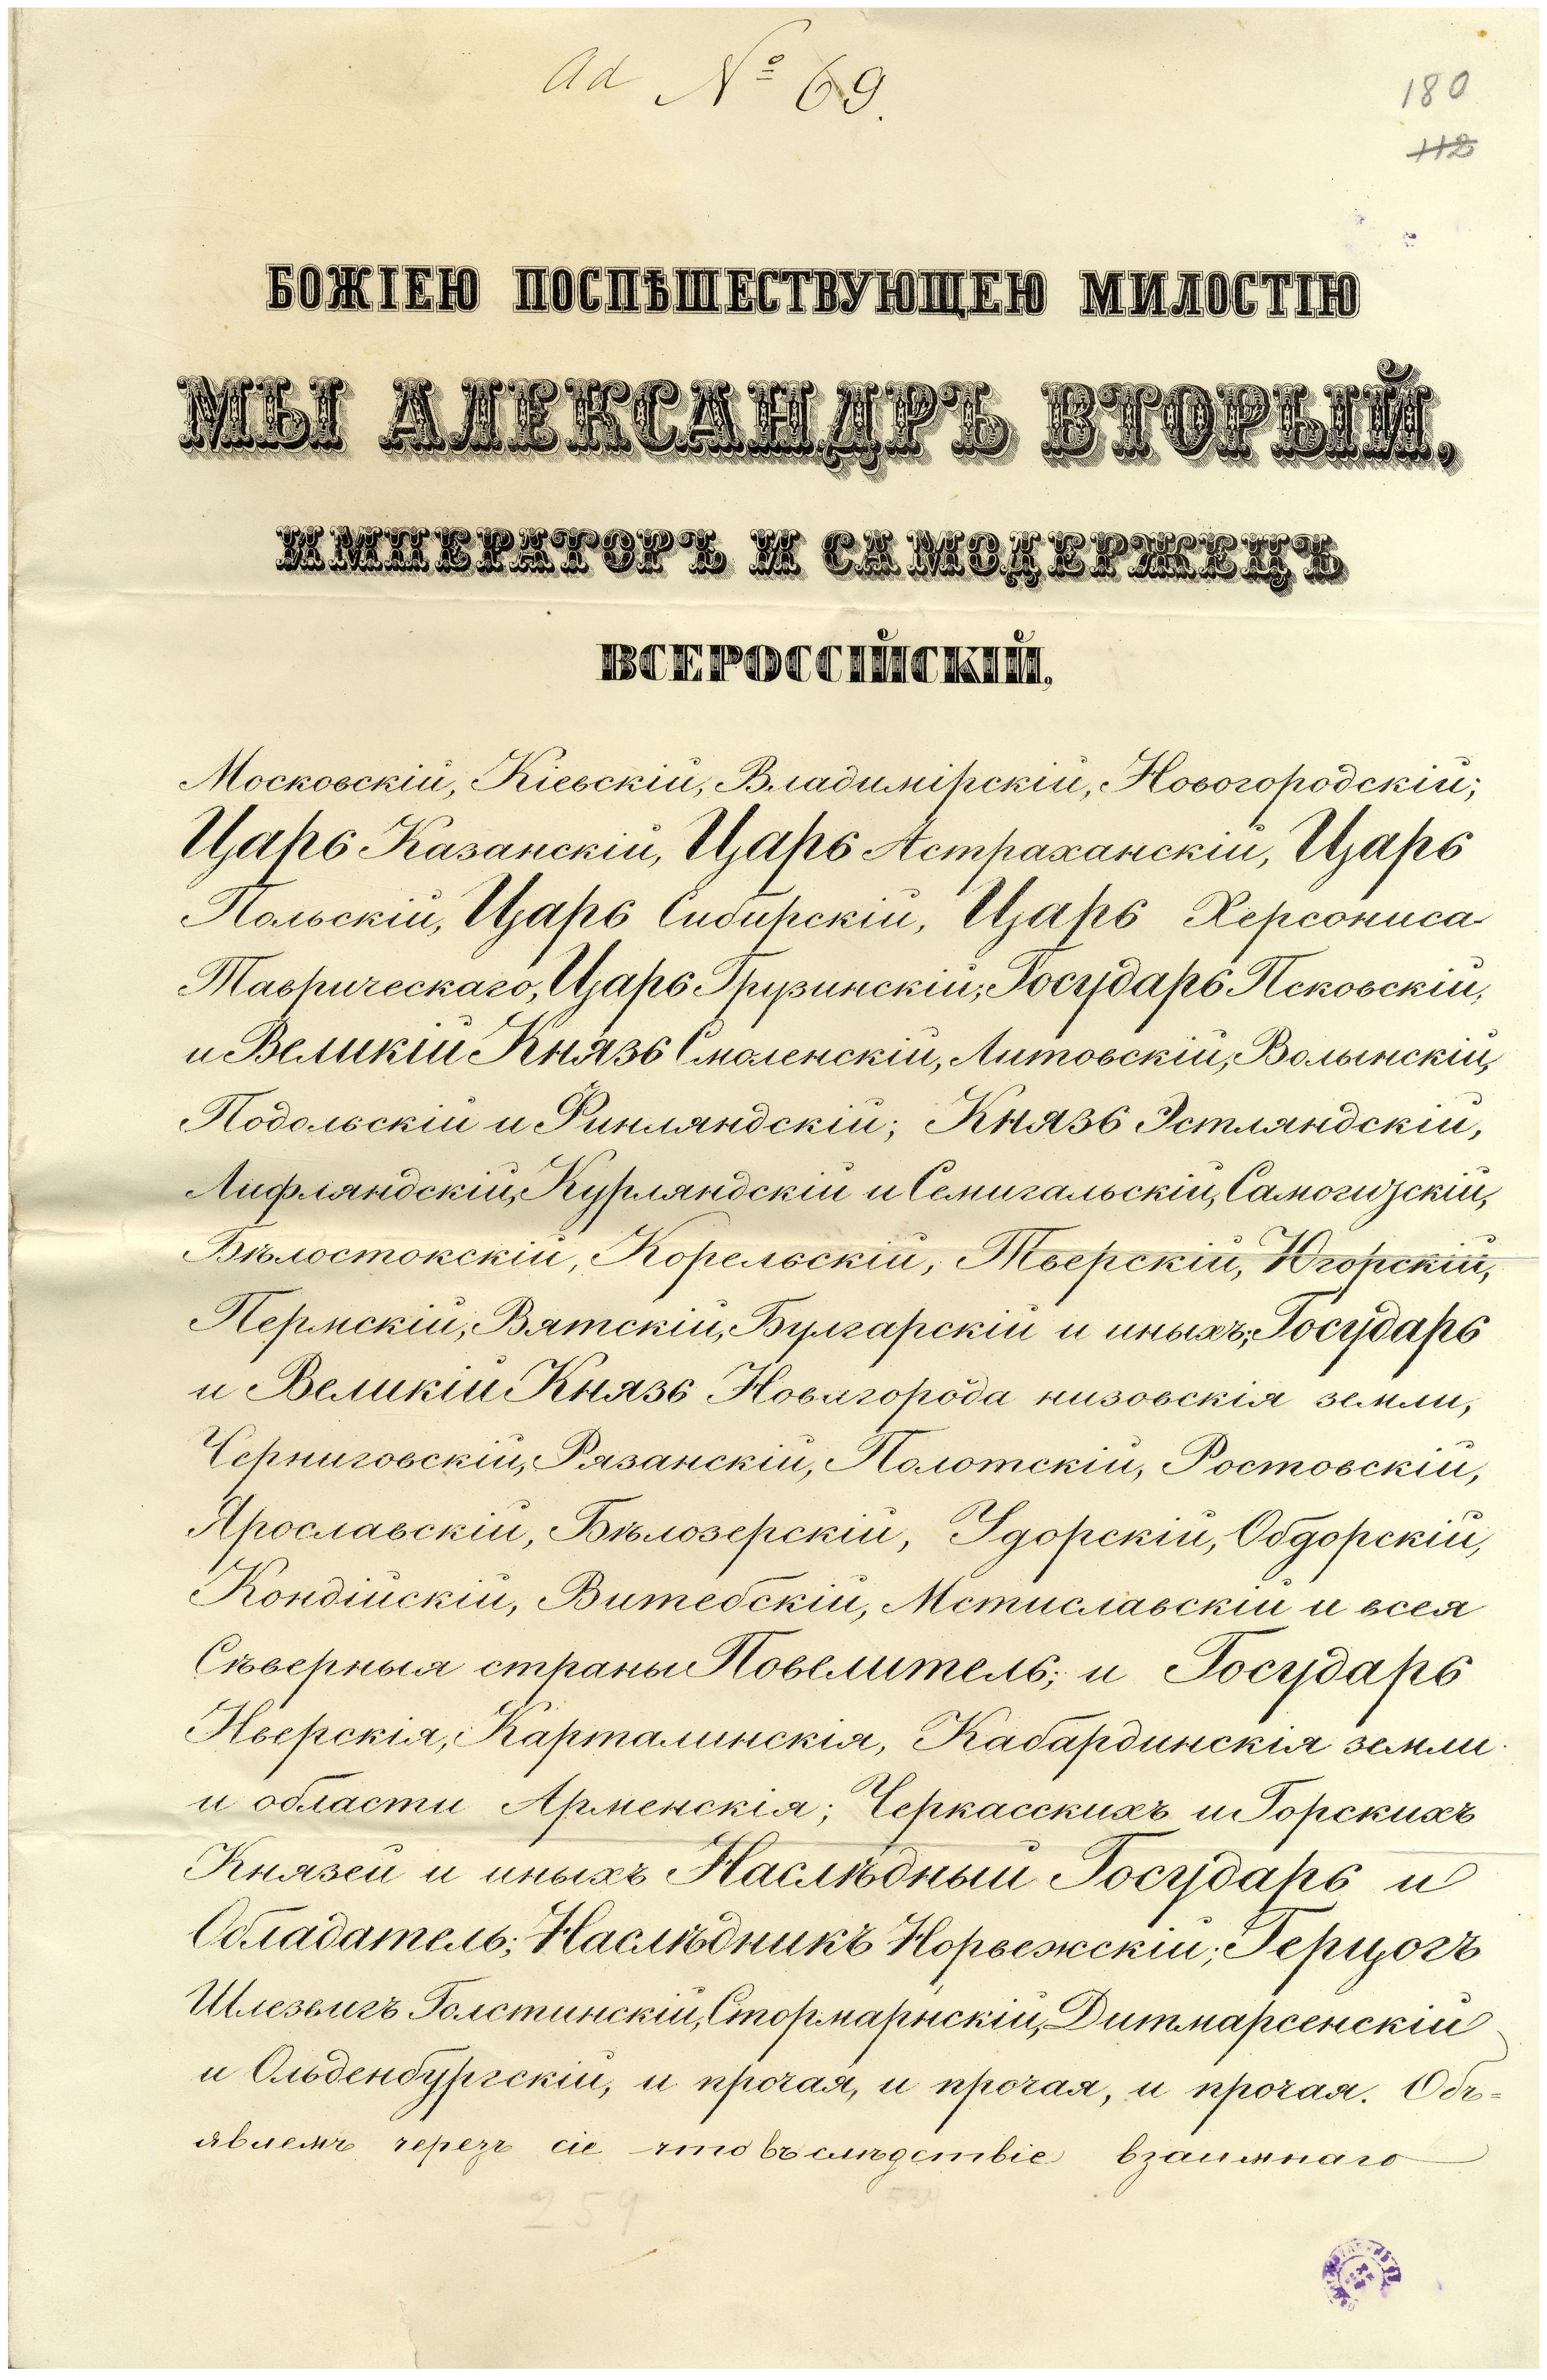 ad № 69.
180
112
БОЖІЕЮ ПОСПѢШЕСТВУЮЩЕЮ МИЛОСТІЮ
МЫ АЛЕКСАНДРЪ ВТОРЫЙ,
ИМПЕРАТОРЪ И САМОДЕРЖЕЦЪ
ВСЕРОССІЙСКІЙ,
Московскій, Кіевскій, Владимірскій, Новогородскій;
Царь Казанскій, Царь Астраханскій, Царь
Польскій, Царь Сибирскій, Царь Херсониса
Таврическаго, Царь Грузинскій; Государь Псковскій,
и Великій Князь Смоленскій, Литовскій, Волынскій,
Подольскій и Финляндскій; Князь Эстляндскій,
Лифляндскій, Курляндскій и Семигальскій, Самогицкій,
Бѣлостокскій, Корельскій, Тверскій, Югорскій,
Пермскій, Вятскій, Булгарскій и иныхъ; Государь
и Великій Князь Новагорода низовскія земли,
Черниговскій, Рязанскій, Полотскій, Ростовскій,
Ярославскій, Бѣлозерскій, Удорскій, Обдорскій,
Кондійскій, Витебскій, Мстиславскій и всея
Сѣверныя страны Повелитель; и Государь
Иверскія, Карталинскія, Кабардинскія земли
и области Арменскія; Черкасскихъ и Горскихъ
Князей и иныхъ Наслѣдный Государь и
Обладатель; Наслѣдникъ Норвежскій; Герцогъ
Шлезвигъ Голстинскій, Стормарнскій, Дитмарсенскій
и Ольденбургскій, и прочая, и прочая, и прочая. Объ=
явлемъ черезъ сіе что въ слѣдствіе взаимнаго
259